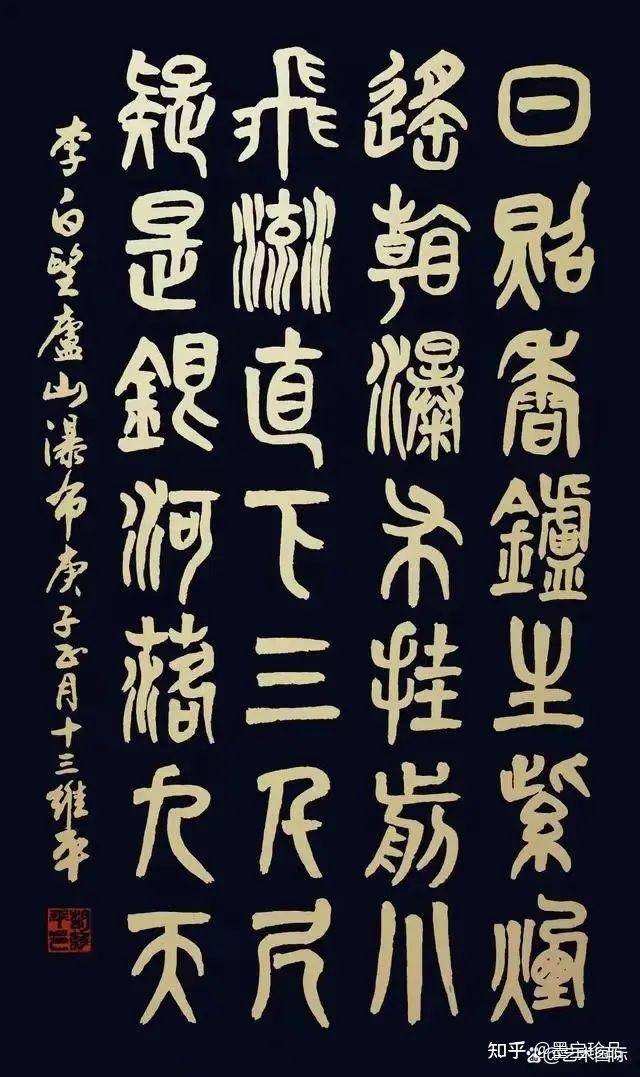 日照香鑪生紫煙
遙看瀑布挂前川
飛流直下三千尺
疑是銀河落九天
李白望廬山瀑布庚子正月十三維平
知乎 @墨宝珍品
艺术国际